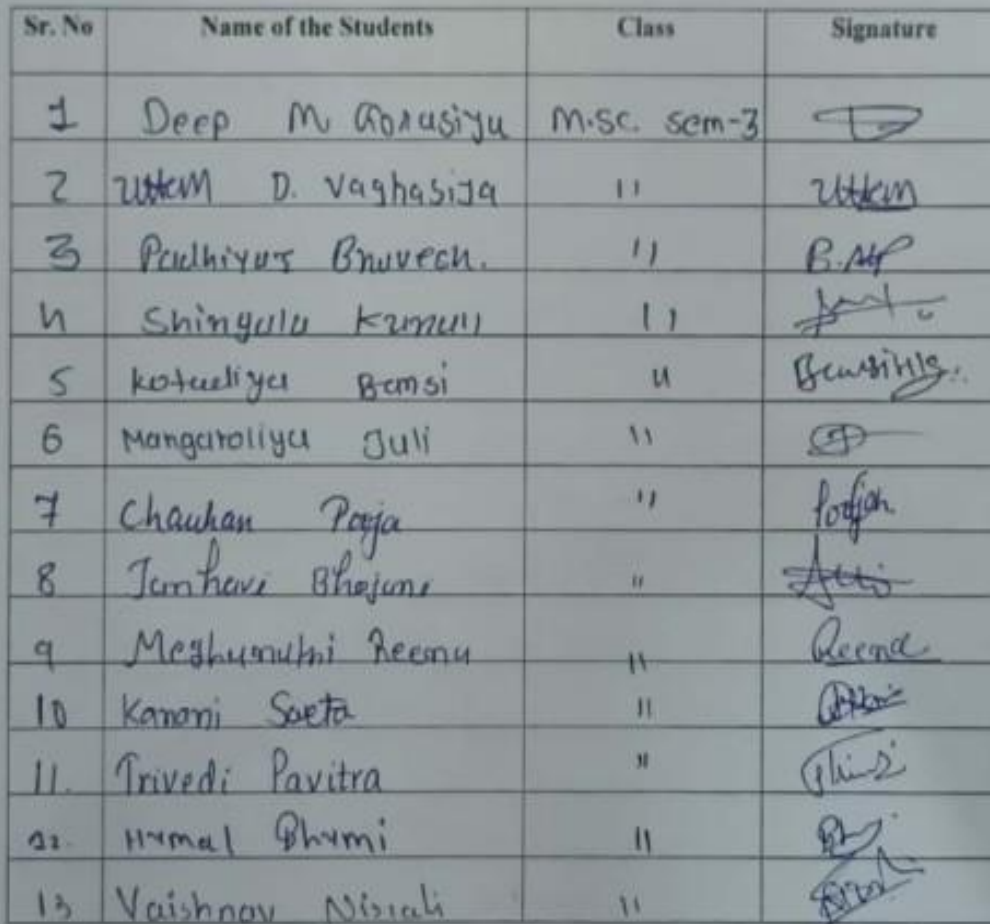 Sr. No Name of the Students Class Signature
1 Deep M Gorasiya M.SC. Sem-3
2 Uttam D. Vaghasiya 11 Uttam
3 Padhiyar Bhuvech. 11
4 Shingala 11
5 Kotadiya Bansi 11
6 Mangaroliya Juli 11
7 Chauhan Pooja 11 Poojan
8 Janhavi Bhojani 11
9 Meghanathi Reena 11 Reena
10 Kanani 11
11. Trivedi Pavitra 11
12. Bhumi 11
13 Vaishnav Nisrali 11